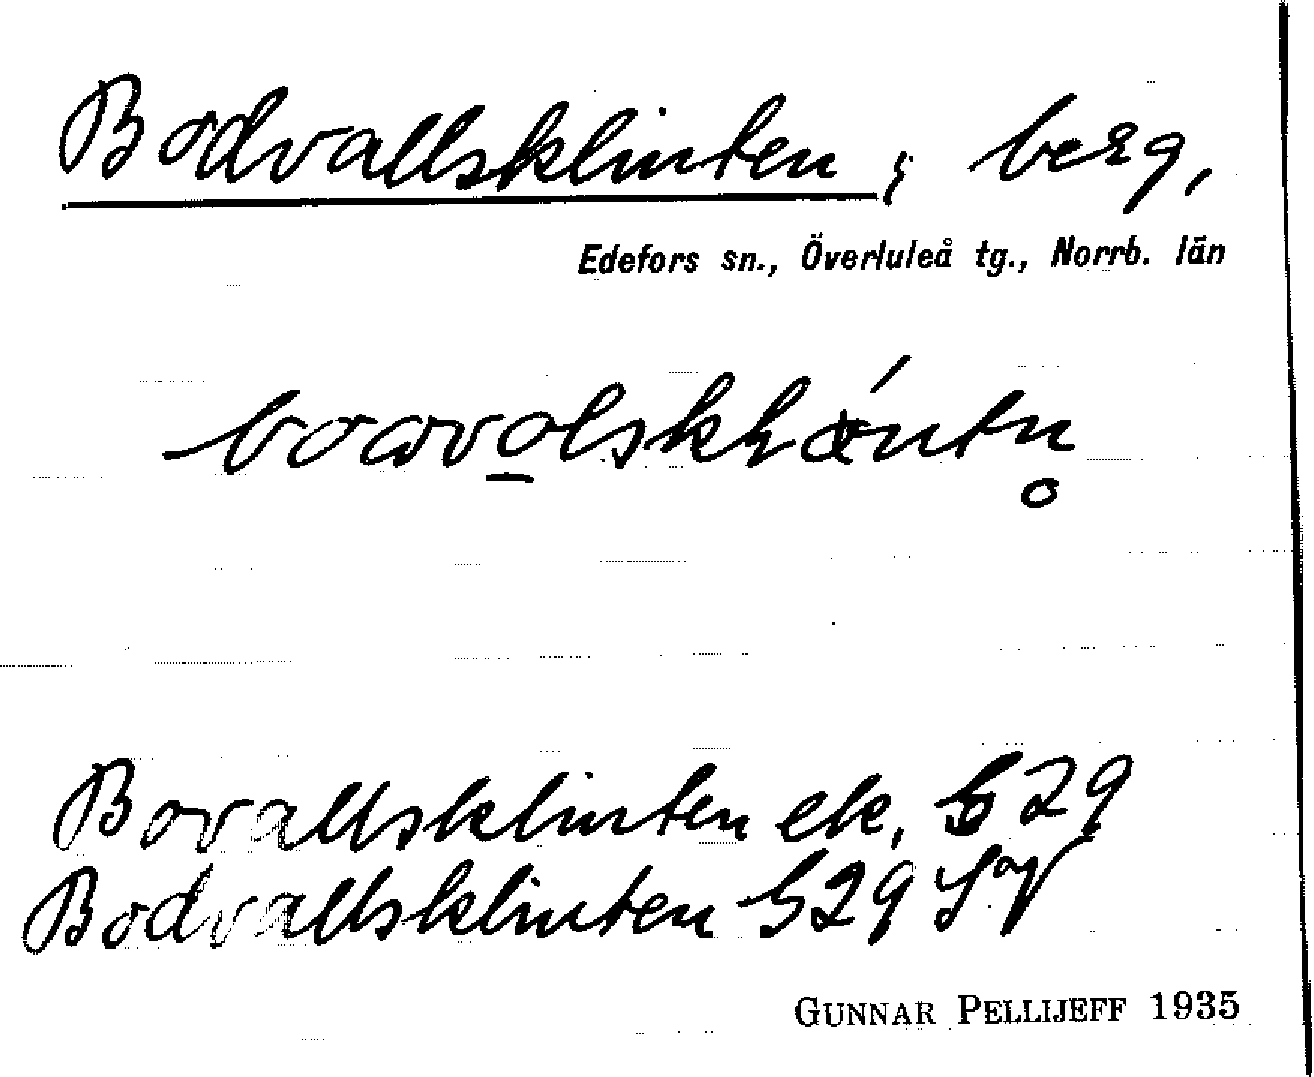 Bodvallsklinten, berg,
Edefors sn., Överluleå tg., Norrb. län
Bovallsklinten ek, b 29
Bodvallsklinten b 29
GUNNAR PELLIJEFF 1935